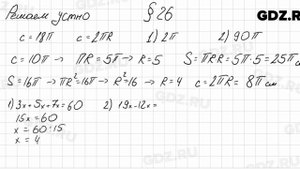 Решаем устно § 26
c = 18π c = 2πR 1) 2π 2) 90π
c = 10π → πR = 5π → R = 5 S = πRR = 5π·5 = 25π
S = 16π → πR² = 16π → R² = 16 → R = 4 c = 2πR = 8π см
1) 3x + 5x + 7x = 60 2) 19x - 12x =
15x = 60
x = 60:15
x = 4
GDZ.RU